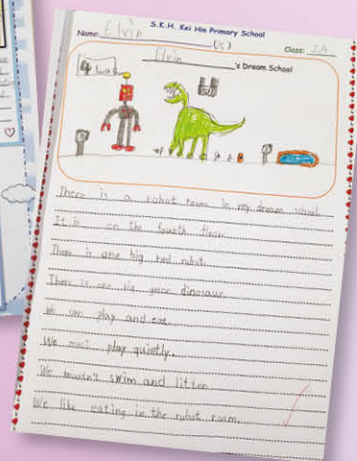 S.K.H. Kei Hin Primary School
Name: Elvin (5) Class: 2A
Elvin 's Dream School
There is a robot room in my dream school.
It is on the fourth floor.
There is one big red robot.
There is one big green dinosaur.
We can play and eat.
We must play quietly.
We mustn't swim and litter.
We like eating in the robot room.